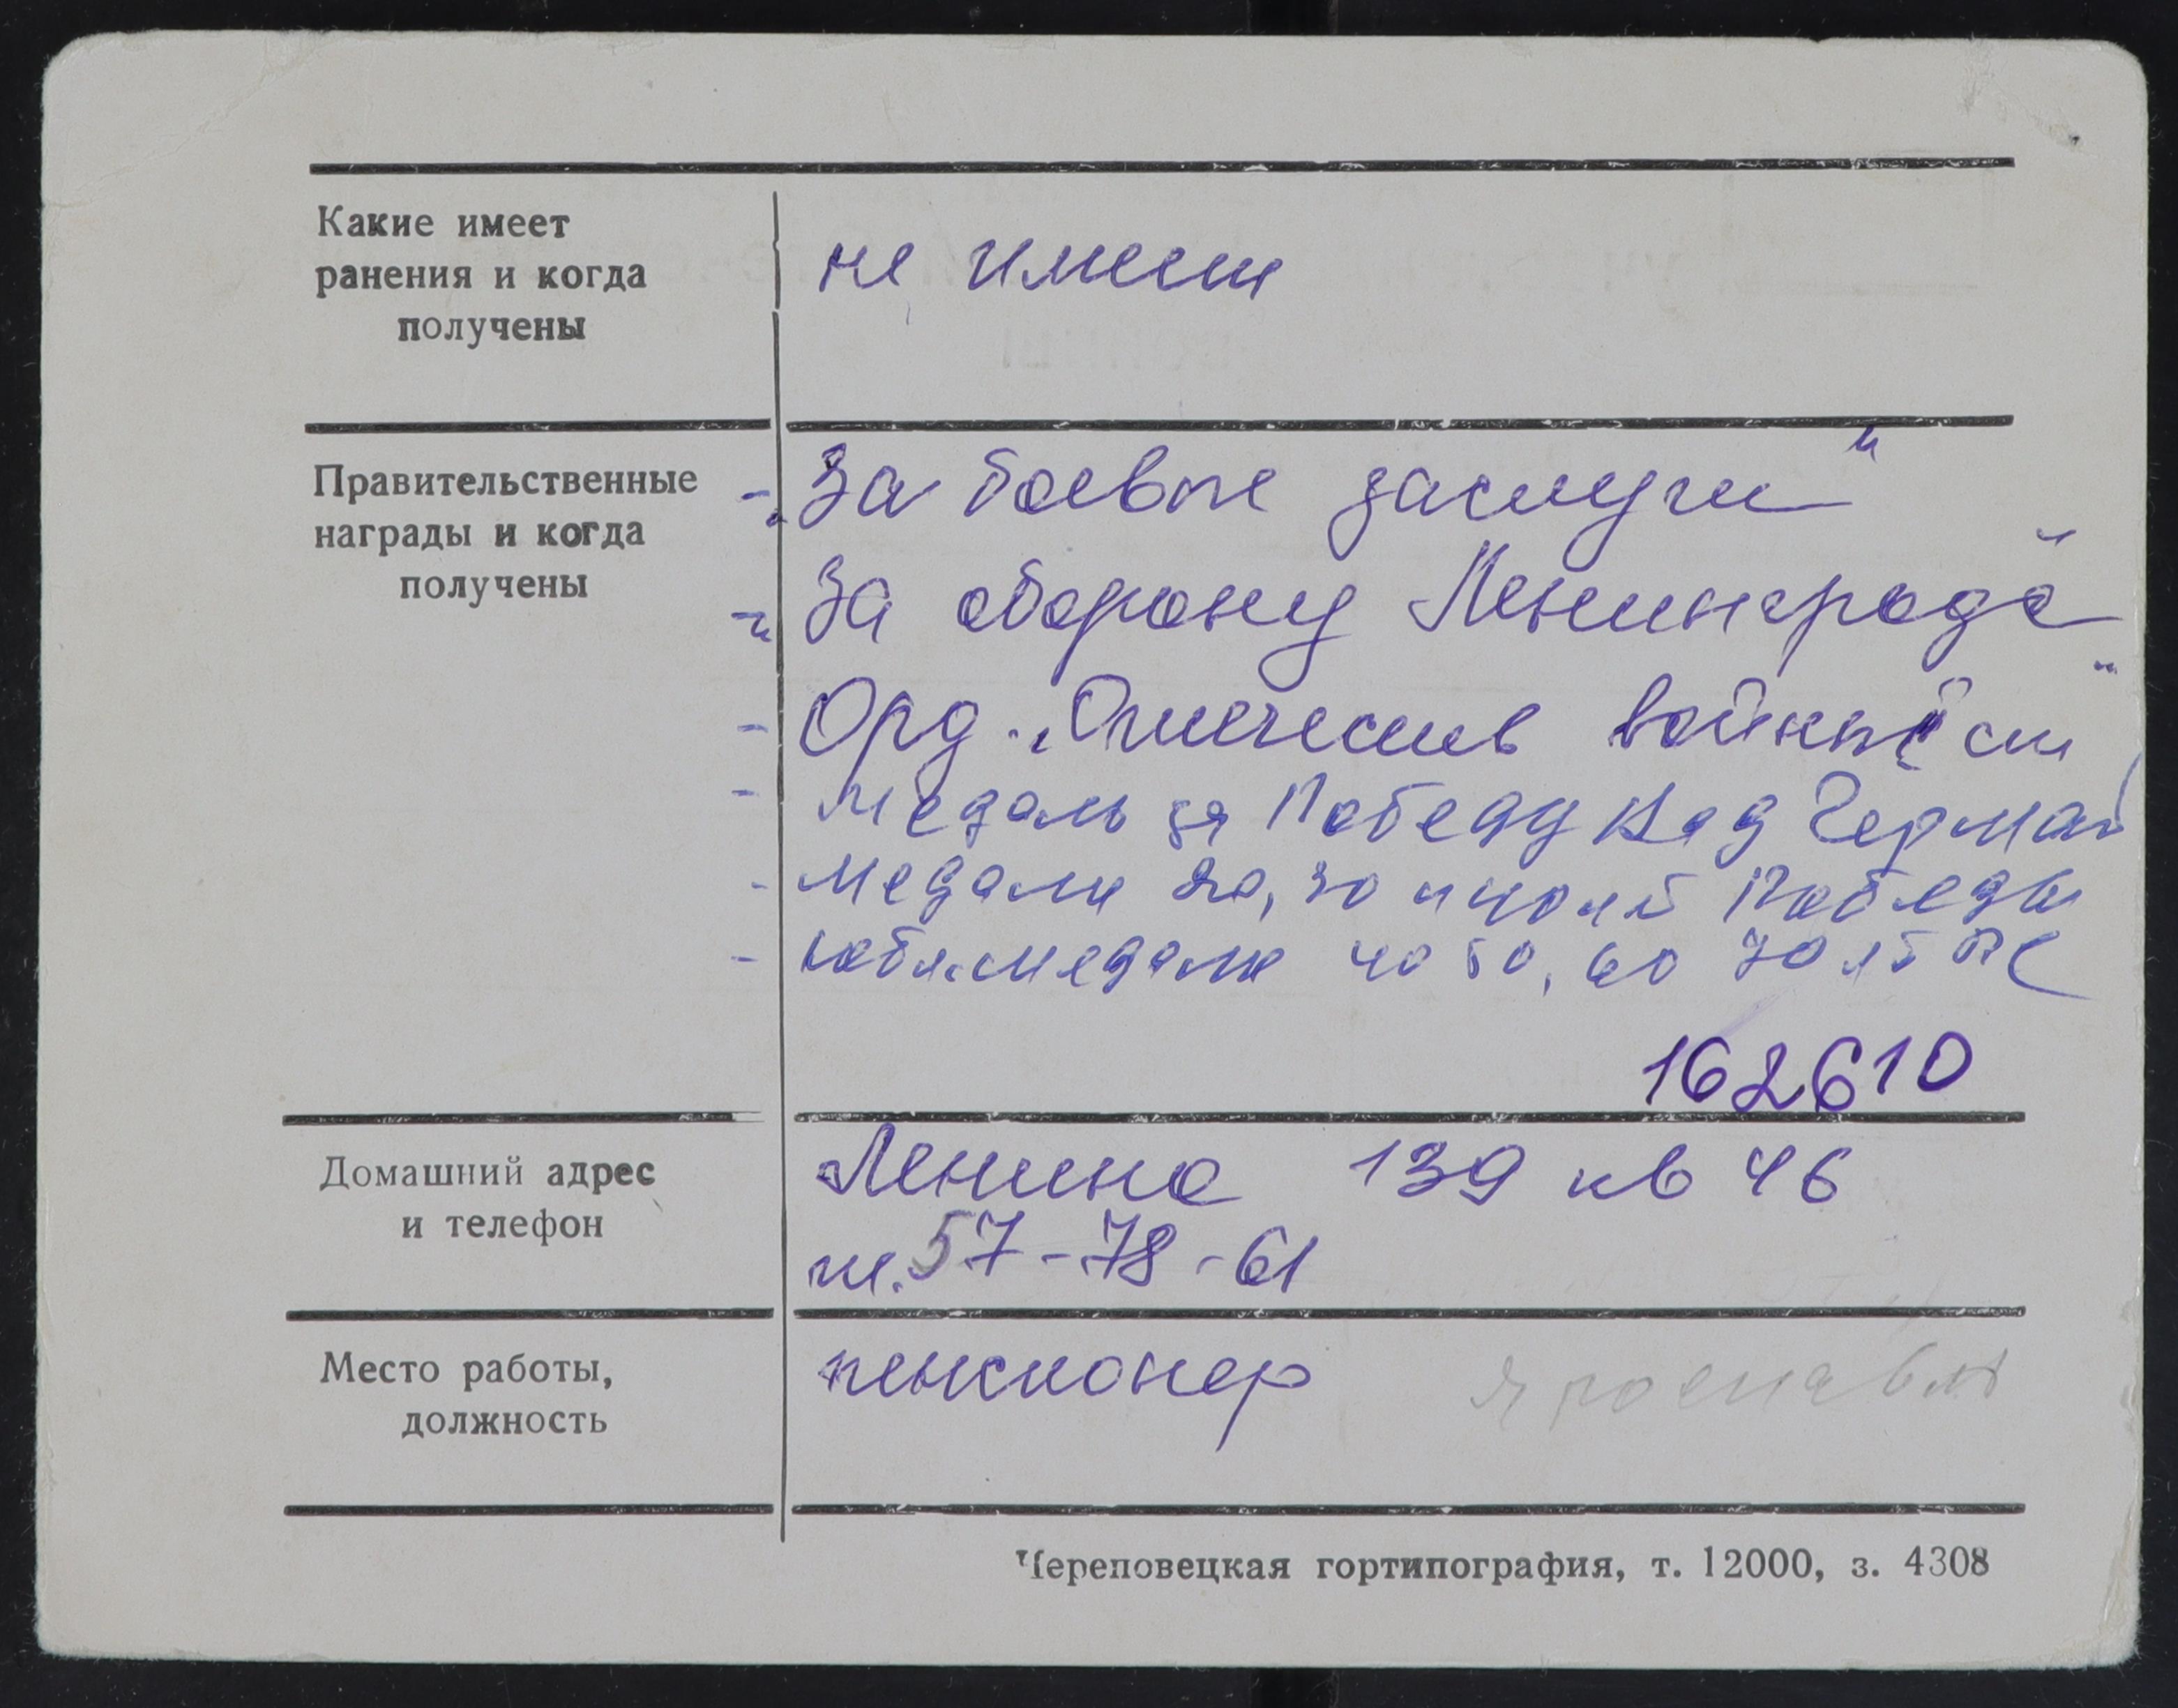 Какие имеет
ранения и когда
получены
не имеет
Правительственные
награды и когда
получены
- „За боевые заслуги"
- „За оборону Ленинграда"
- Орд. „Отечеств войны II ст"
- медаль за Победу над Герман
- медали 20, 30 и 40 лет Победы
- юбил. медали 40 50, 60 70 лет ВС
162610
Домашний адрес
и телефон
Ленина 139 кв 46
т. 57-78-61
Место работы,
должность
пенсионер
Ярославль
Череповецкая гортипография, т. 12000, з. 4308